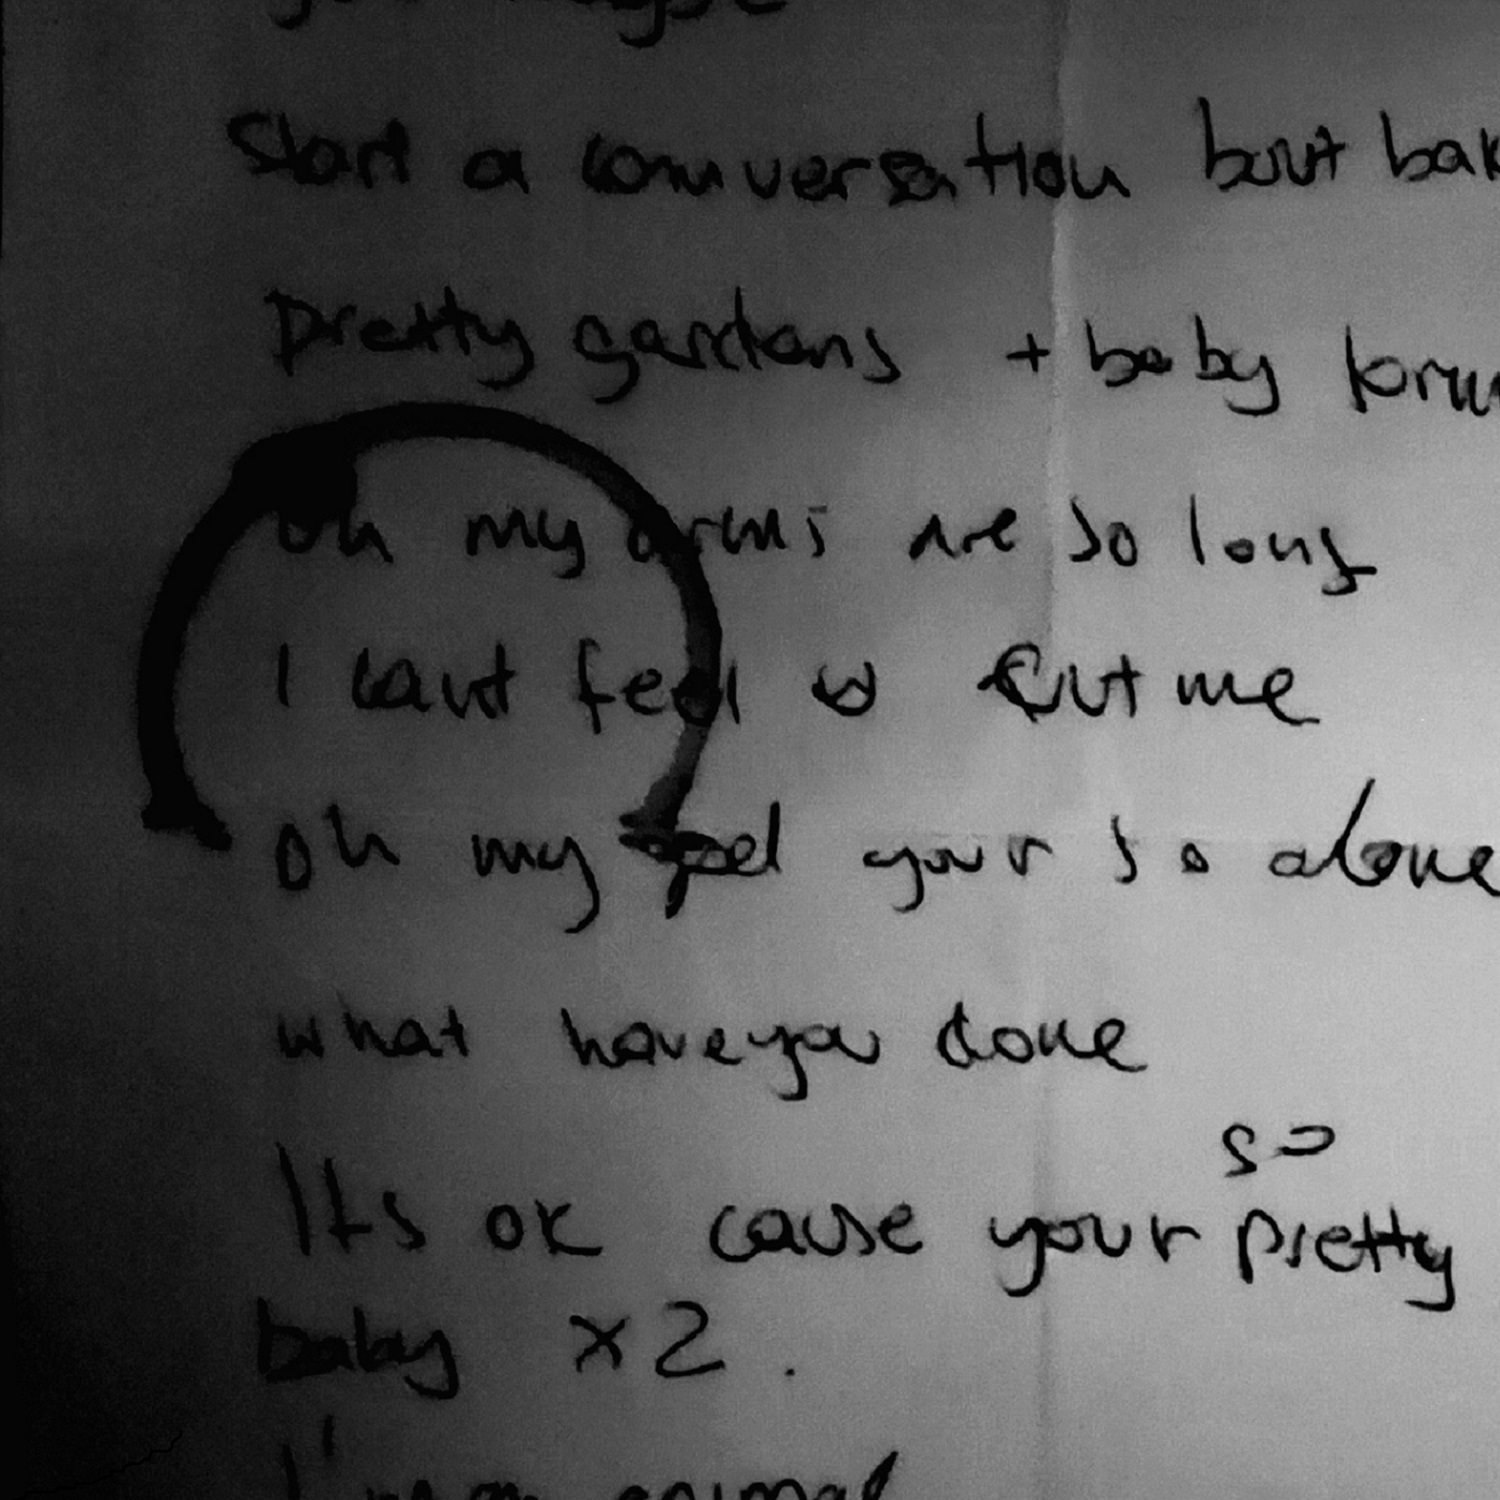 Start a conversation but
pretty gardens + baby
oh my arms are so long
I cant feel cut me
oh my your so alone
what have you done
so
Its ok cause your pretty
baby x2.
I'm an animal